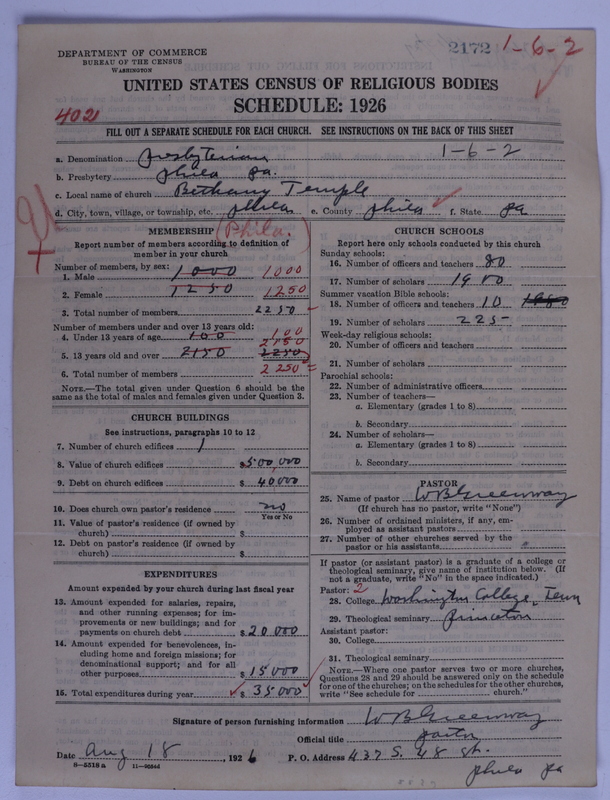 2172 1-6-2
DEPARTMENT OF COMMERCE
BUREAU OF THE CENSUS
WASHINGTON
UNITED STATES CENSUS OF RELIGIOUS BODIES
SCHEDULE: 1926
4021
FILL OUT A SEPARATE SCHEDULE FOR EACH CHURCH. SEE INSTRUCTIONS ON THE BACK OF THIS SHEET
a. Denomination Presbyterian 1-6-2
b. Presbytery Phila Pa.
c. Local name of church Bethany Temple
d. City, town, village, or township, etc. Phila e. County Phila f. State Pa
(Phila.)
MEMBERSHIP
Report number of members according to definition of
member in your church
Number of members, by sex:
1. Male 1000 1000
2. Female 1250 1250
3. Total number of members 2250
Number of members under and over 13 years old:
4. Under 13 years of age 100 100
5. 13 years old and over 2150 2150 2250
6. Total number of members 2250
NOTE.—The total given under Question 6 should be the
same as the total of males and females given under Question 3.
CHURCH BUILDINGS
See instructions, paragraphs 10 to 12
7. Number of church edifices 1
8. Value of church edifices $500,000
9. Debt on church edifices $40000
10. Does church own pastor's residence no
Yes or No
11. Value of pastor's residence (if owned by
church) $
12. Debt on pastor's residence (if owned by
church) $
EXPENDITURES
Amount expended by your church during last fiscal year
13. Amount expended for salaries, repairs,
and other running expenses; for im-
provements or new buildings; and for
payments on church debt $20000
14. Amount expended for benevolences, in-
cluding home and foreign missions; for
denominational support; and for all
other purposes $15000
15. Total expenditures during year $35000
CHURCH SCHOOLS
Report here only schools conducted by this church
Sunday schools:
16. Number of officers and teachers 80
17. Number of scholars 1900
Summer vacation Bible schools:
18. Number of officers and teachers 10
19. Number of scholars 225
Week-day religious schools:
20. Number of officers and teachers
21. Number of scholars
Parochial schools:
22. Number of administrative officers
23. Number of teachers—
a. Elementary (grades 1 to 8)
b. Secondary
24. Number of scholars—
a. Elementary (grades 1 to 8)
b. Secondary
PASTOR
25. Name of pastor W B Greenway
(If church has no pastor, write "None")
26. Number of ordained ministers, if any, em-
ployed as assistant pastors
27. Number of other churches served by the
pastor or his assistants
If pastor (or assistant pastor) is a graduate of a college or
theological seminary, give name of institution below. (If
not a graduate, write "No" in the space indicated.)
Pastor: 2
28. College Washington College, Tenn
29. Theological seminary Princeton
Assistant pastor:
30. College
31. Theological seminary
NOTE.—Where one pastor serves two or more churches,
Questions 28 and 29 should be answered only on the schedule
for one of the churches; on the schedules for the other churches,
write "See schedule for church."
Signature of person furnishing information W B Greenway
Official title pastor
Date Aug 18, 1926 P. O. Address 437 S. 48 St.
8—5318 a Phila Pa